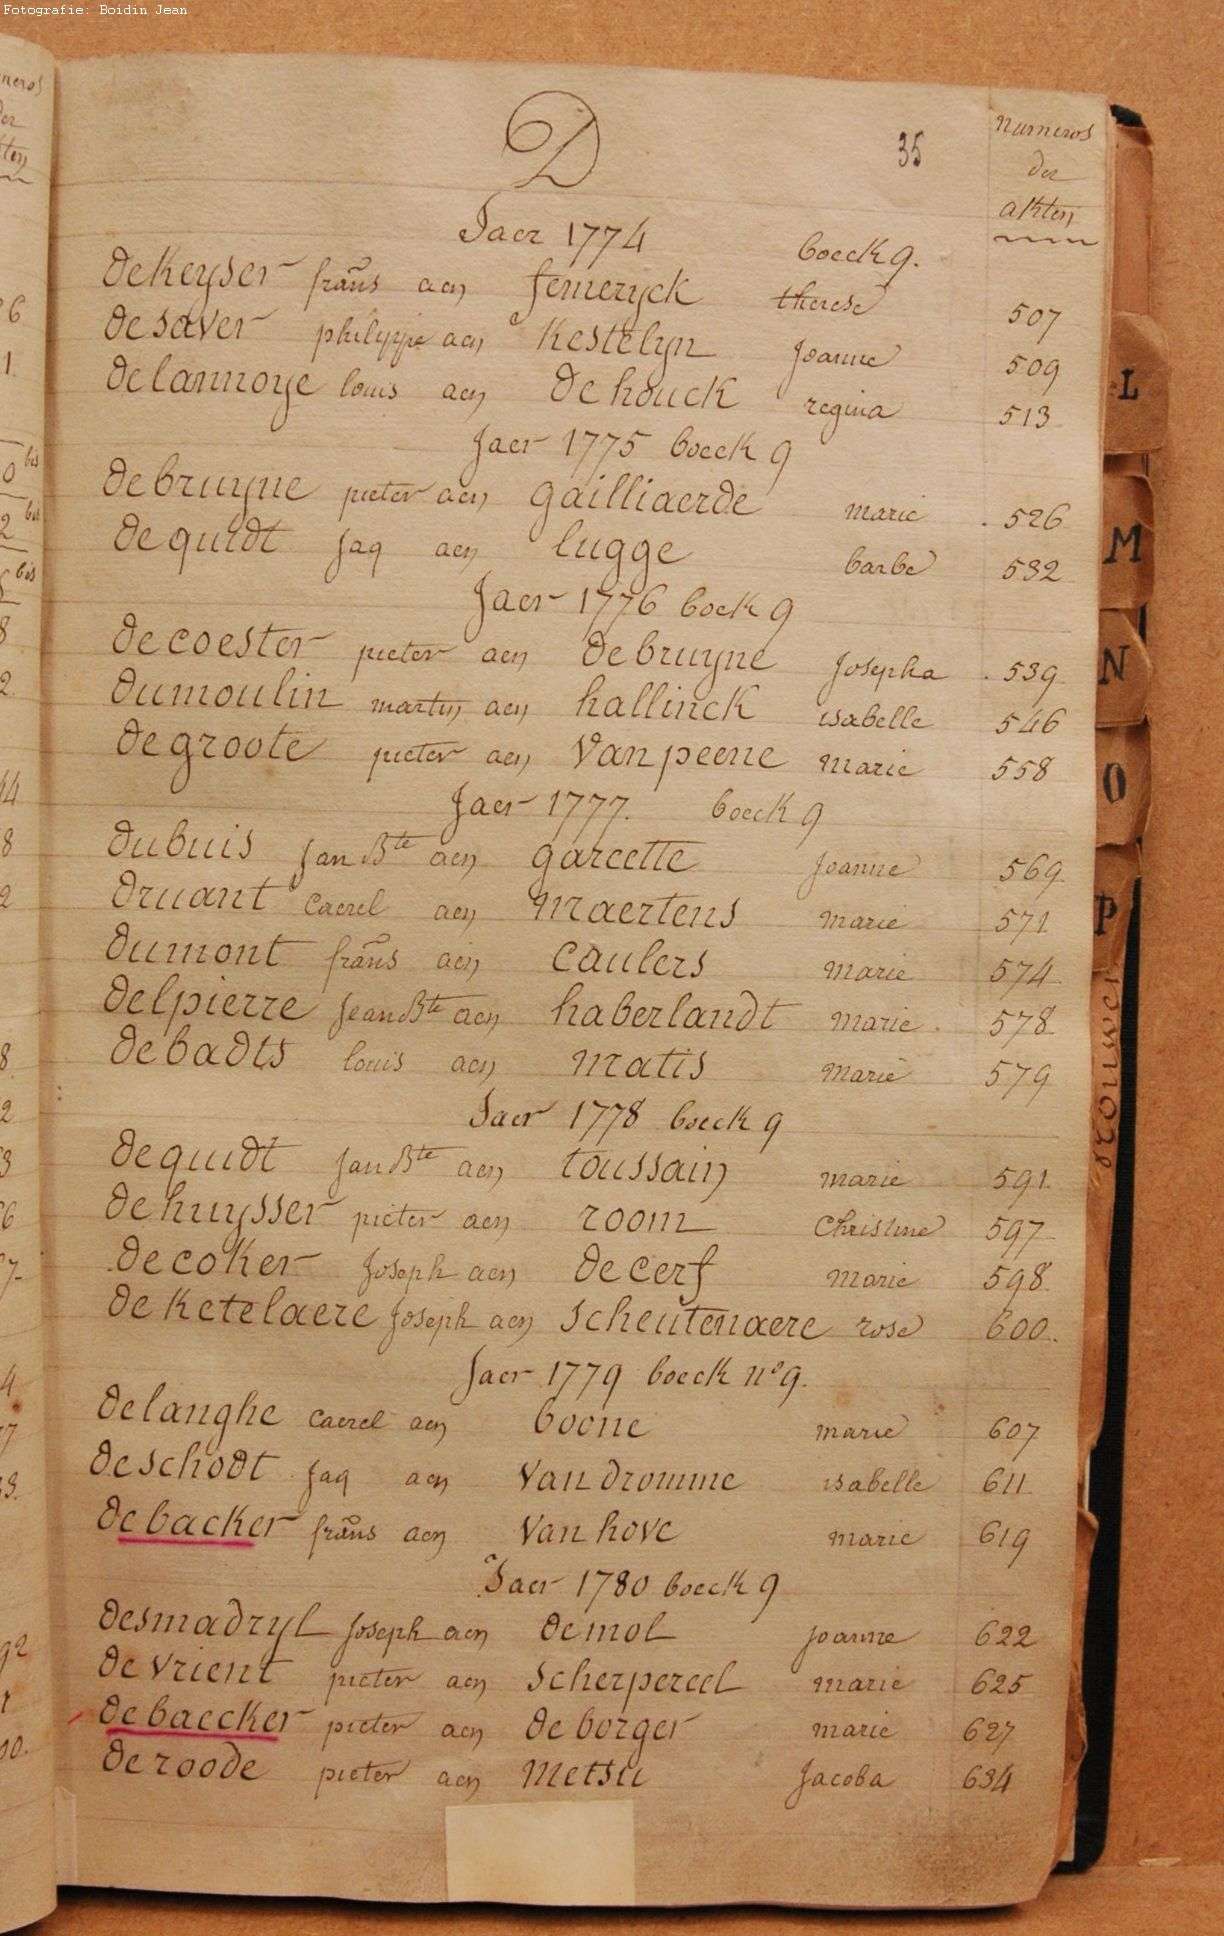 Fotografie: Boidin Jean
D
35
numeros
der
akten
Jaer 1774 boeck 9.
deKeyser frans aen femeryck therese 507
desaver philippe aen Kestelyn Joanne 509
delannoye louis aen De houck regina 513
Jaer 1775 boeck 9
debruyne pieter aen gailliaerde marie 526
dequidt Jaq aen lugge barbe 532
Jaer 1776 boek 9
decoester pieter aen debruyne Josepha 539
dumoulin martin aen hallinck isabelle 546
degroote pieter aen Van peene marie 558
Jaer 1777. boeck 9
dubuis Jan Bte aen garcette Joanne 569
druant Caerel aen maertens marie 571
dumont frans aen Caulers marie 574
delpierre Jean Bte aen haberlandt marie 578
debadts louis aen matis marie 579
Jaer 1778 boeck 9
dequidt Jan Bte aen toussain marie 591
dehuysser pieter aen room Christine 597
decoker Joseph aen decerf marie 598
deKetelaere Joseph aen Scheutenaere rose 600
Jaer 1779 boeck no 9.
delanghe Caerel aen boone marie 607
deschodt Jaq aen Van dromme isabelle 611
debacker frans aen Van hove marie 619
Jaer 1780 boeck 9
desmadryl Joseph aen demol Joanne 622
devrient pieter aen Scherpereel marie 625
debaecker pieter aen de borger marie 627
deroode pieter aen metsu Jacoba 634
L
M
N
O
P